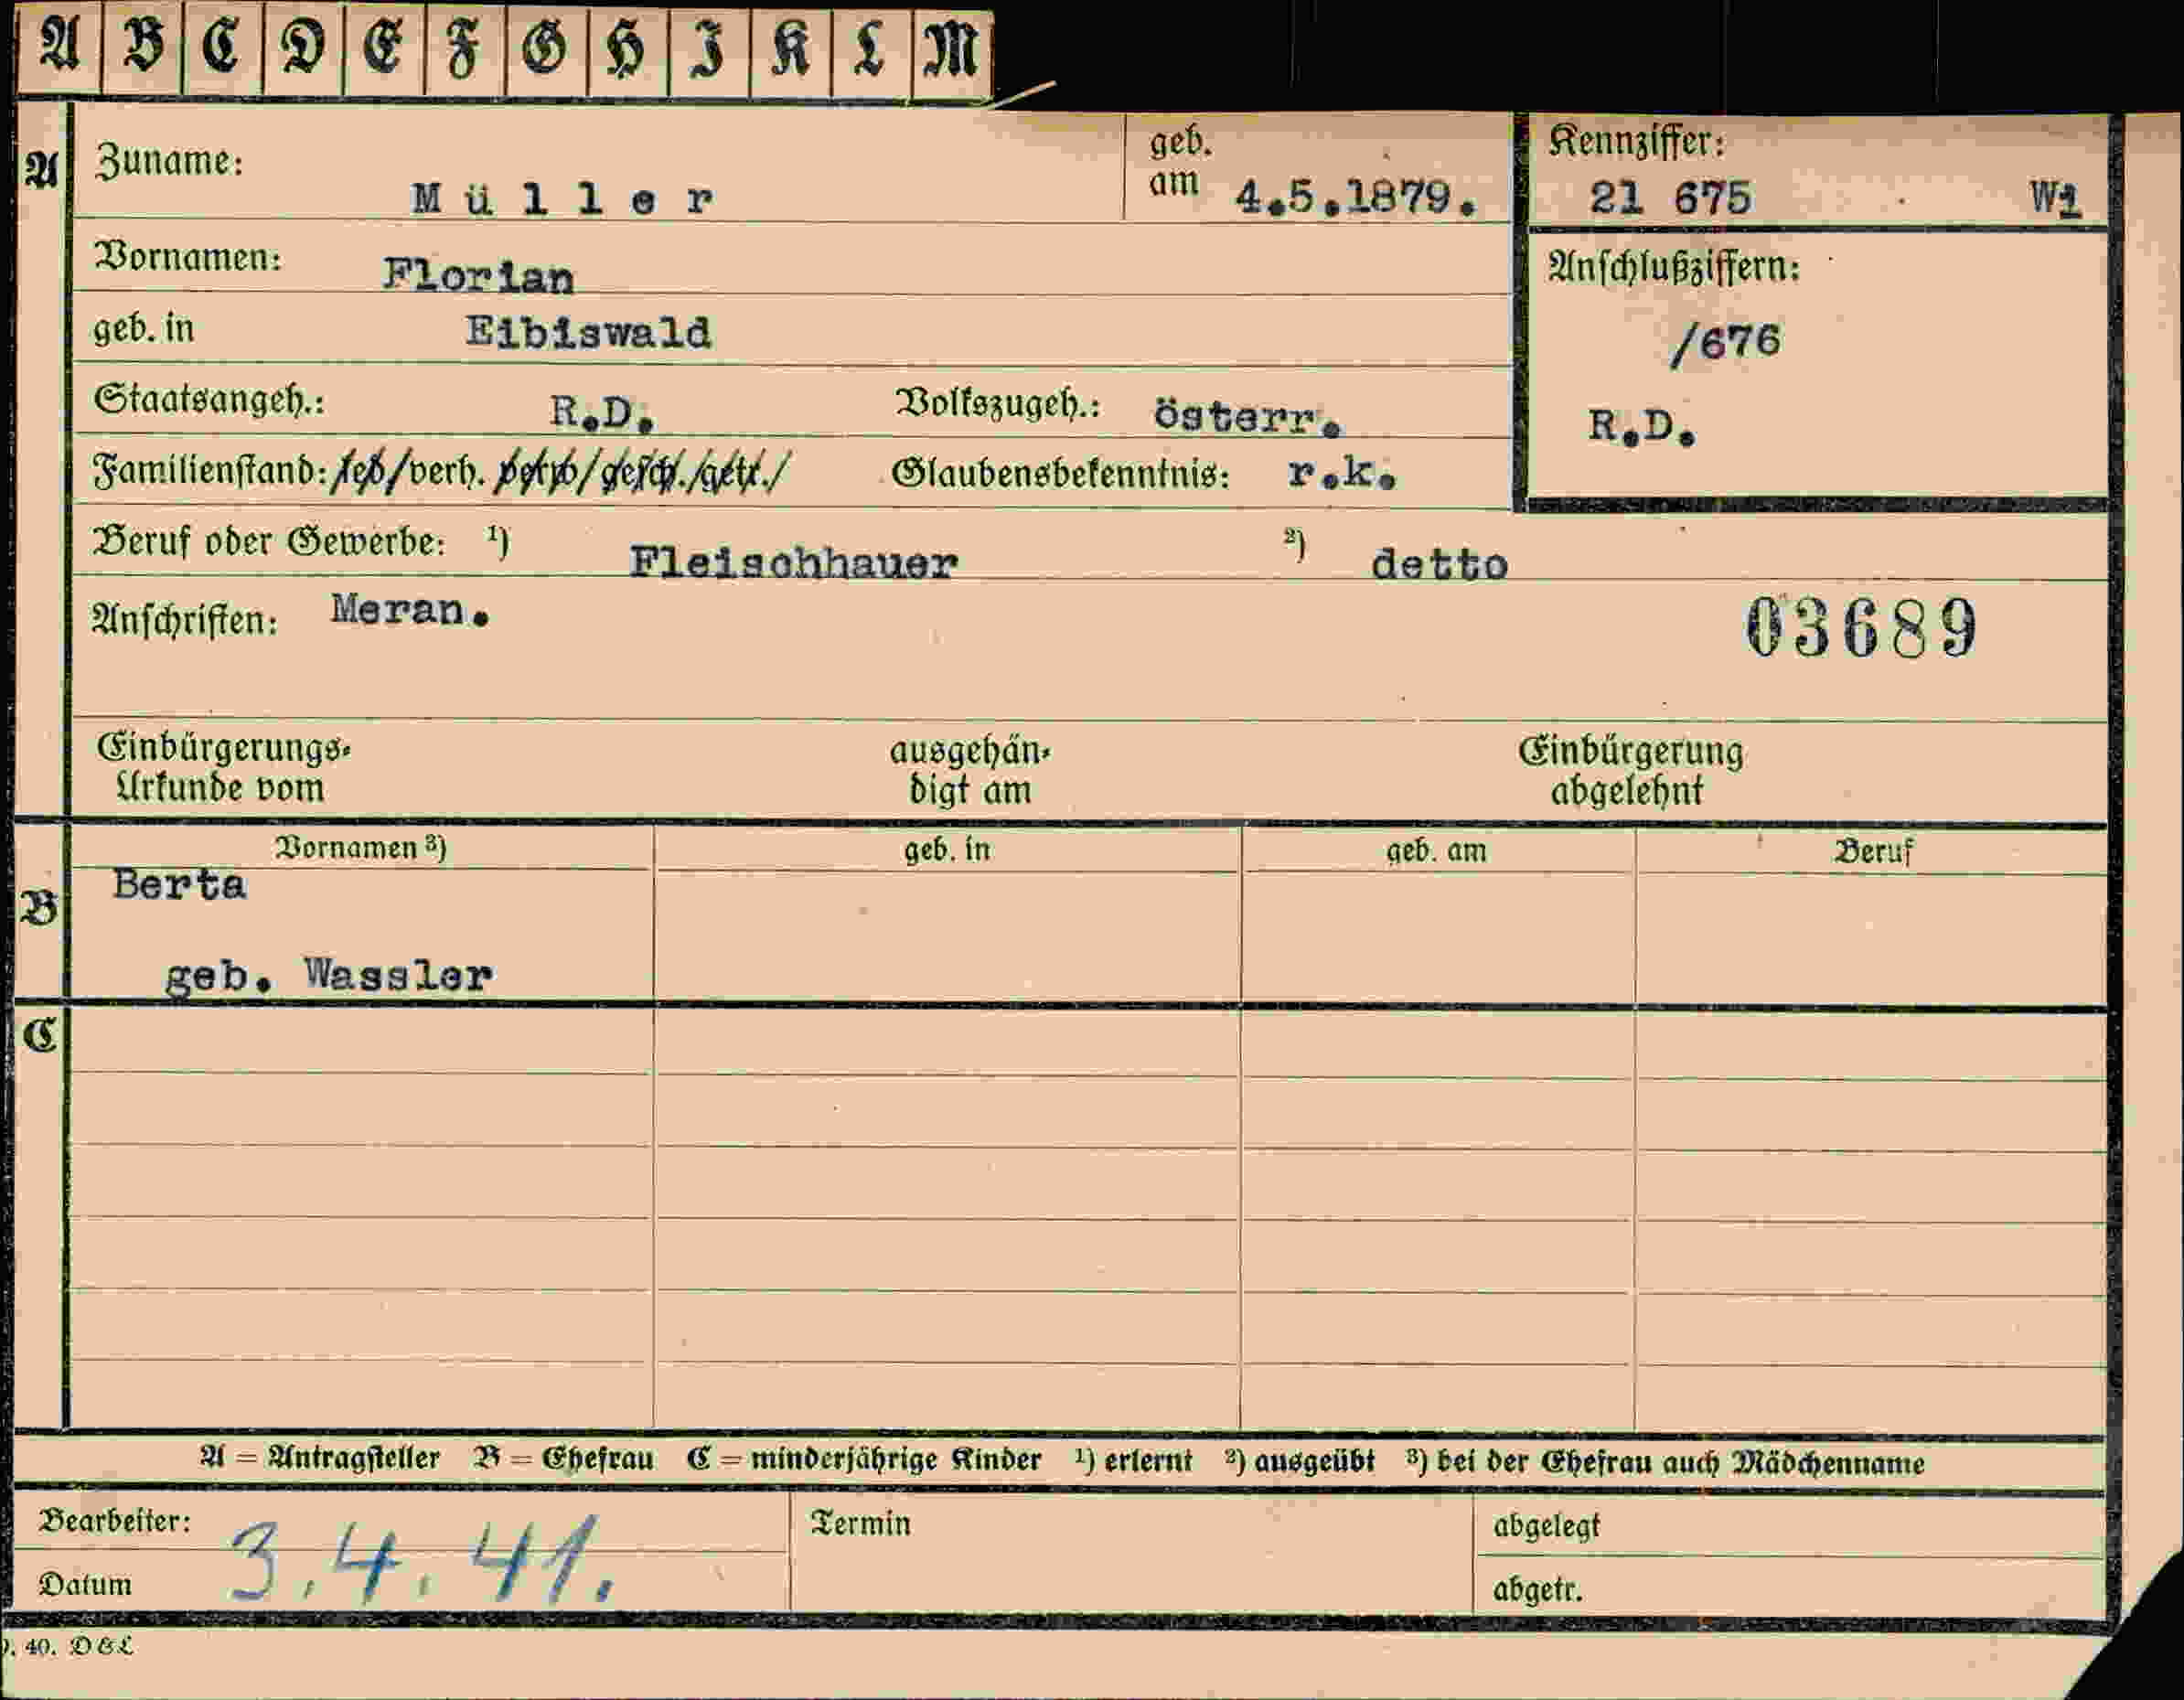 A B C D E F G H I K L M
A
Zuname: Müller
geb. am 4.5.1879.
Kennziffer:
21 675 Wi
Vornamen: Florian
Anschlußziffern:
/676
R.D.
geb. in Eibiswald
Staatsangeh.: R.D. Volkszugeh.: österr.
Familienstand: led/verh. verw/gesch./getr./ Glaubensbekenntnis: r.k.
Beruf oder Gewerbe: ¹) Fleischhauer ²) detto
Anschriften: Meran.
03689
Einbürgerungs-
Urkunde vom
ausgehän-
digt am
Einbürgerung
abgelehnt
B
Vornamen ³) geb. in geb. am Beruf
Berta
geb. Wassler
C
A = Antragsteller B = Ehefrau C = minderjährige Kinder ¹) erlernt ²) ausgeübt ³) bei der Ehefrau auch Mädchenname
Bearbeiter:
Datum 3.4.41.
Termin
abgelegt
abgetr.
40. D&L